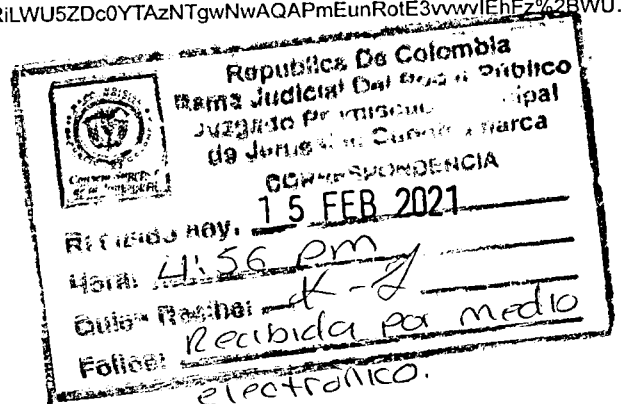 RiLWU5ZDc0YTAzNTgwNwAQAPmEunRotE3vvwvIEhFz%2BWU.
Republica De Colombia
Rama Judicial Del Público
Juzgado
de Cundinamarca
CORRESPONDENCIA
Recibido Hoy, 15 FEB 2021
Hora: 4:56 pm
Quien Recibe:
Folios: Recibida por medio
electronico.